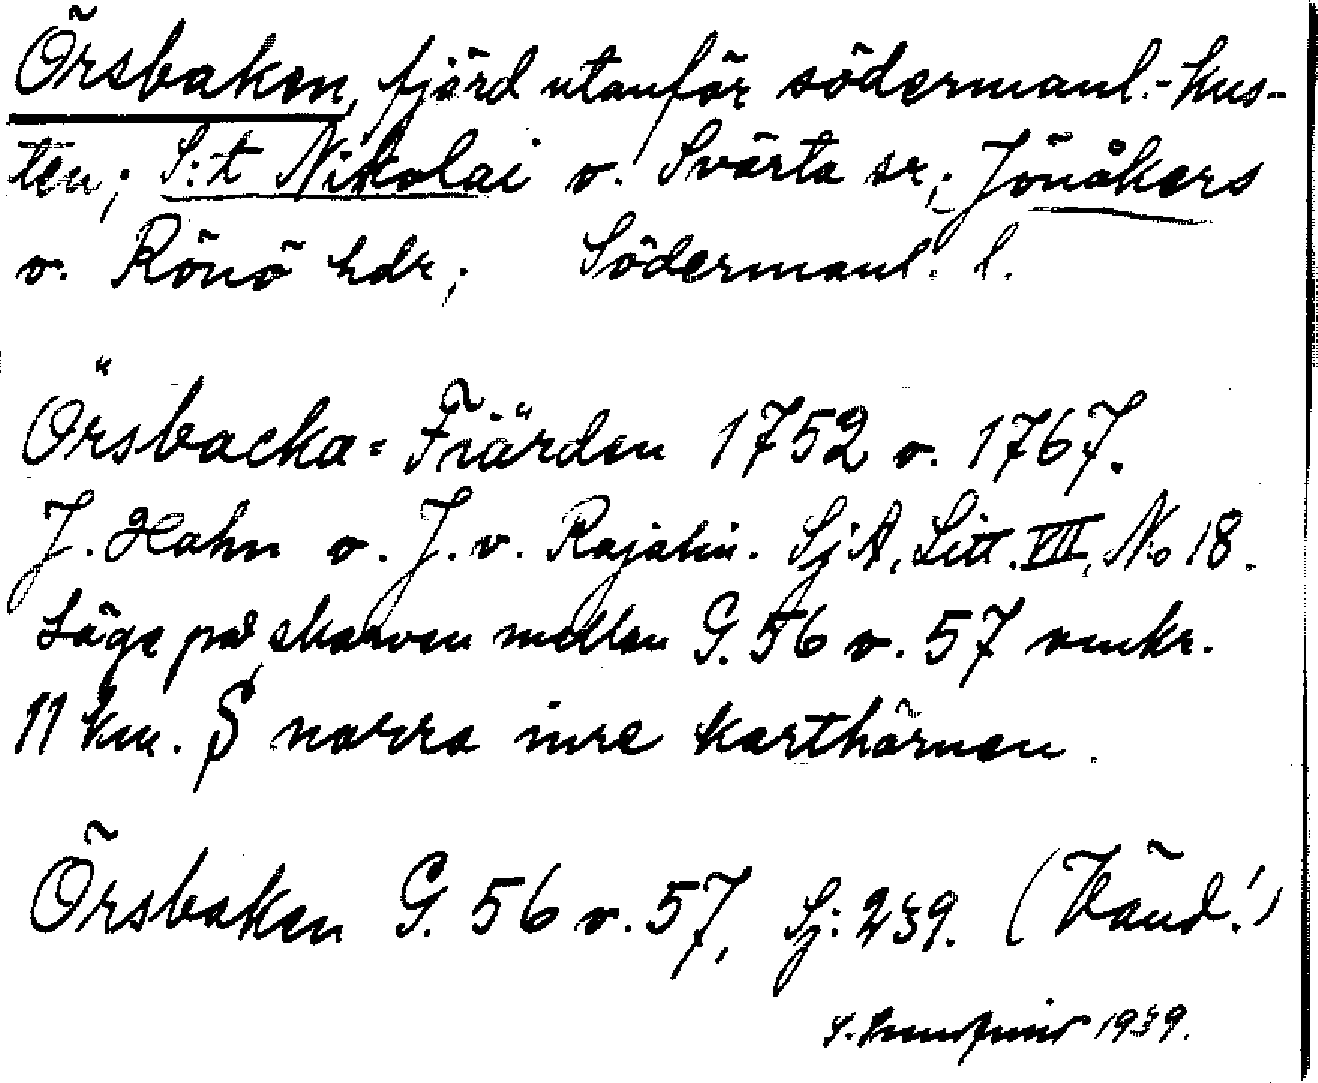 Örsbaken, fjärd utanför södermanl.-kus-
ten; S:t Nikolai o. Svärta sr; Jönåkers
o. Rönö hdr; Södermanl. l.
Örsbacka-Fiärden 1752 o. 1767.
J. Hahn o. J. v. Rajalin. SjA, Litt. VII, No 18.
Läge på skarven mellan G. 56 o. 57 omkr.
11 km. S norra inre karthörnen.
Örsbaken G. 56 o. 57, Sj: 239. (Vänd!)
1939.